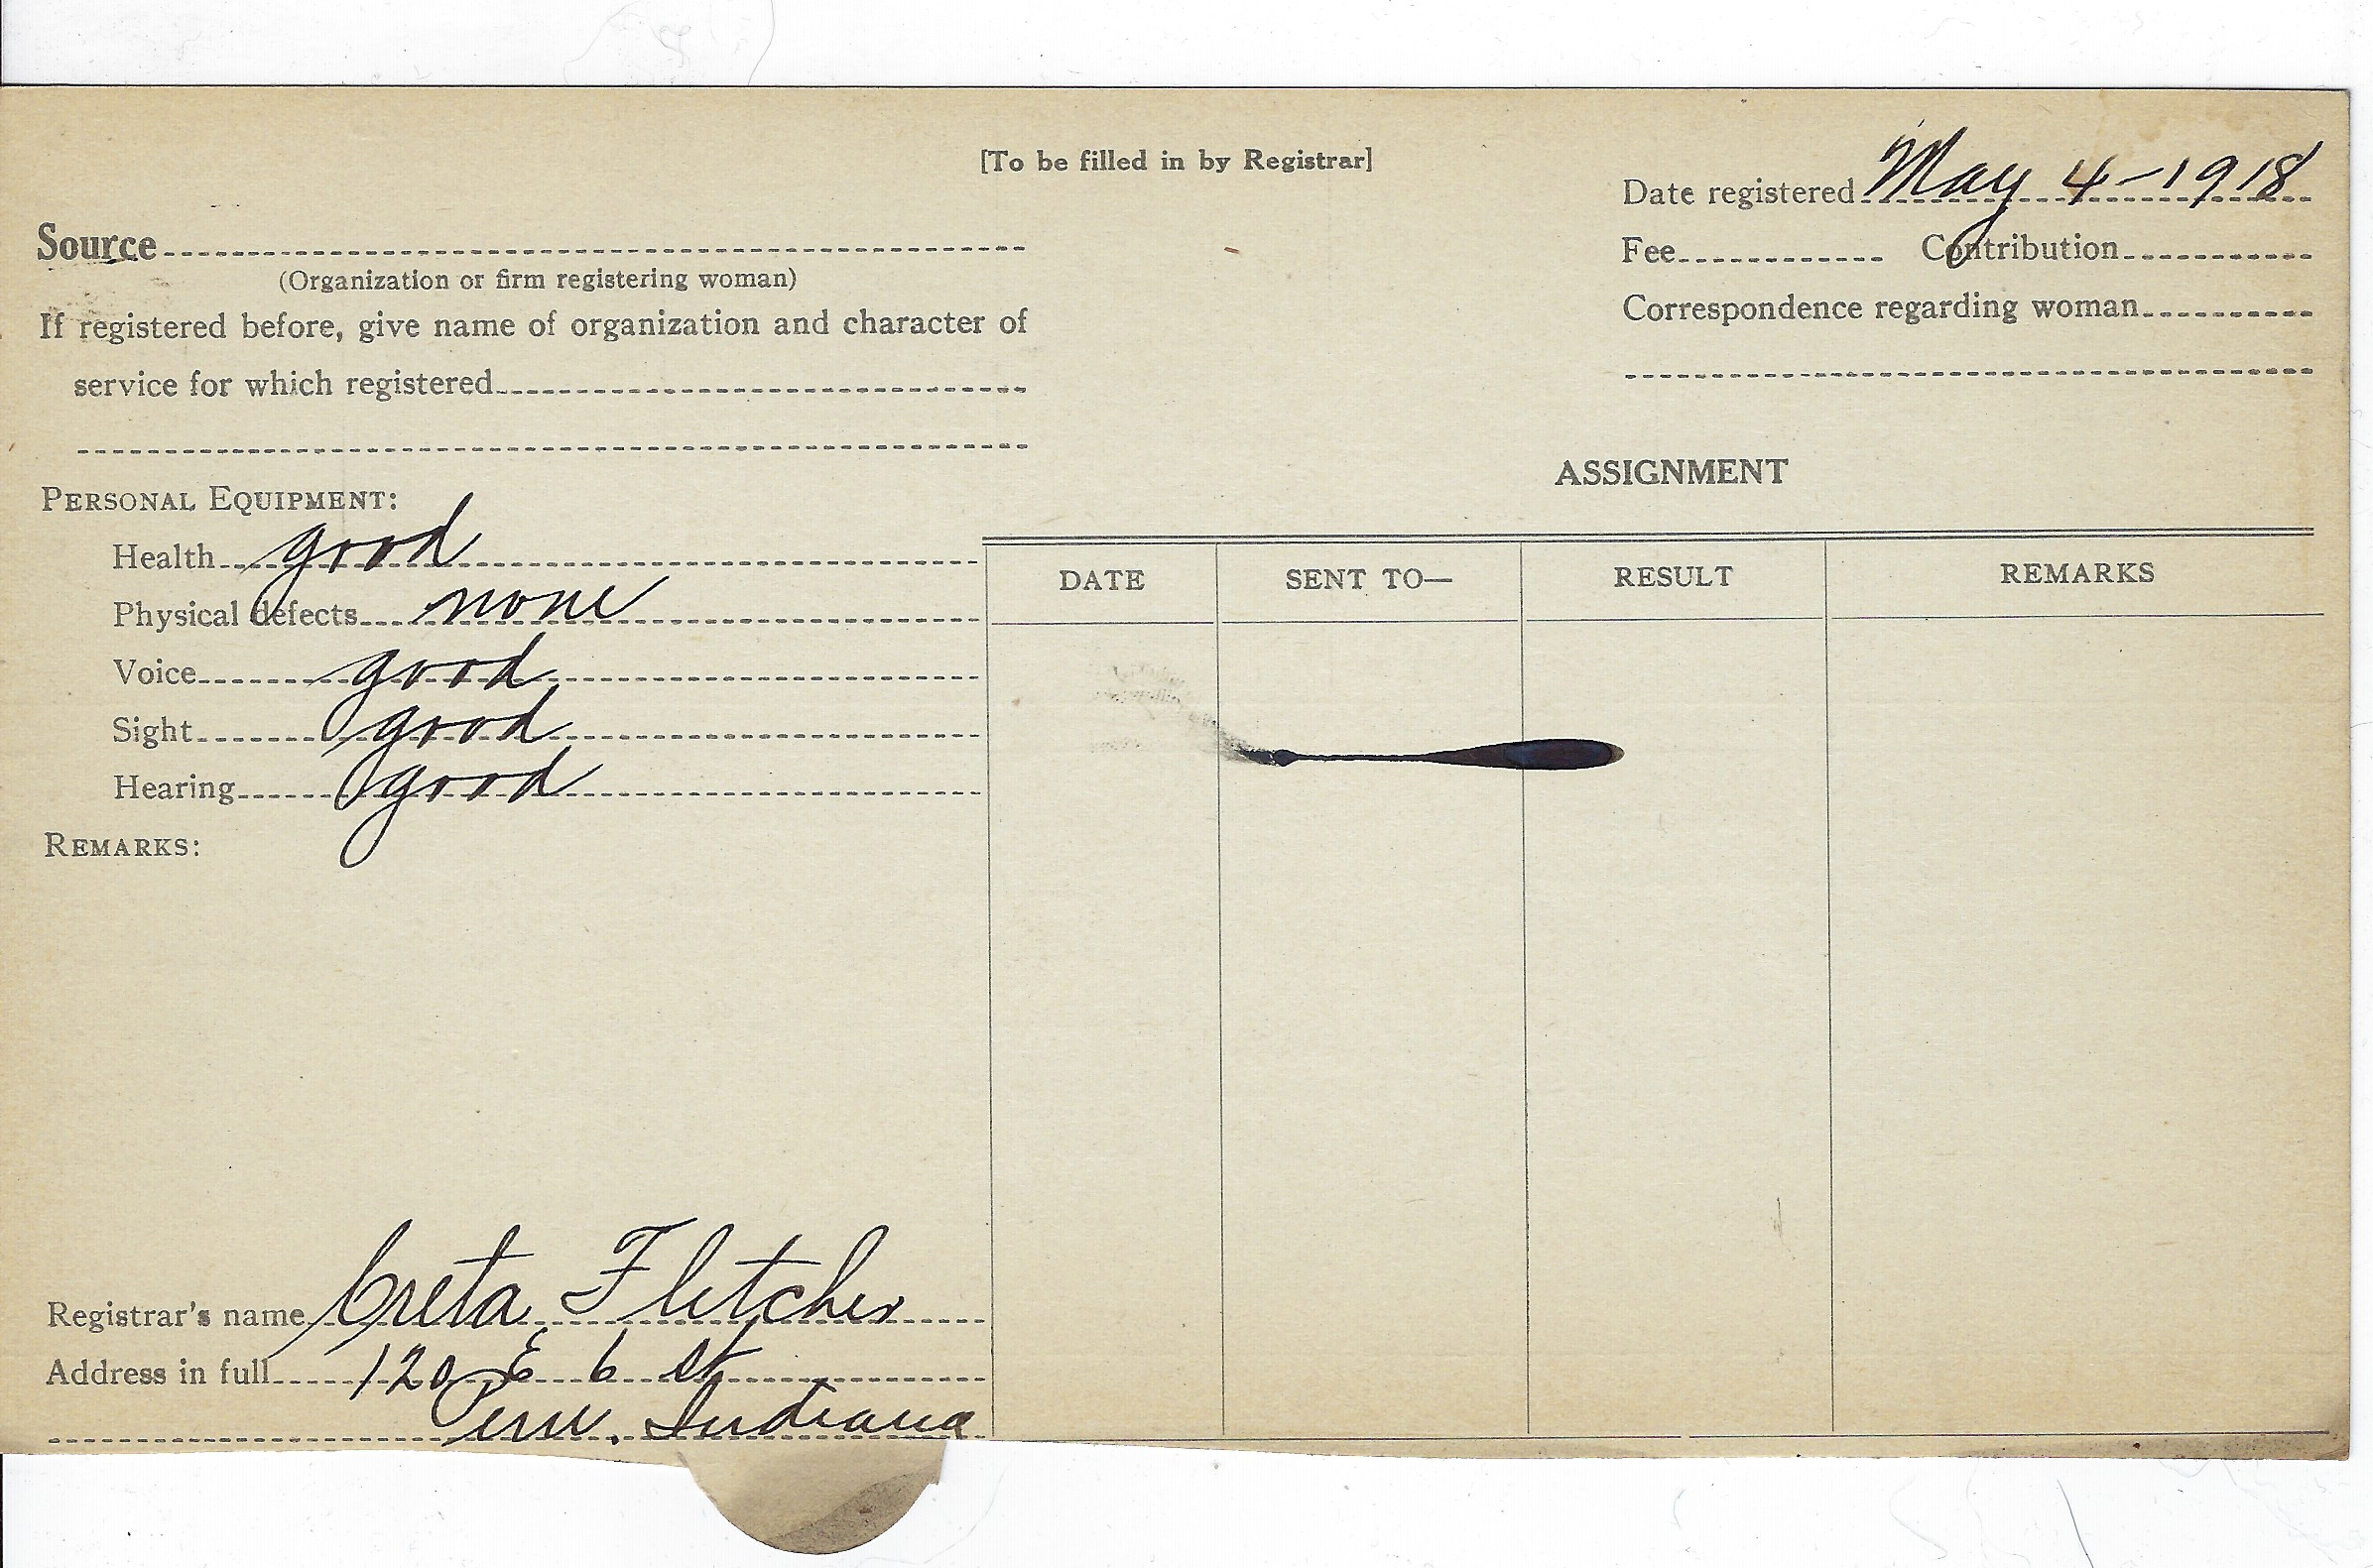 [To be filled in by Registrar]
Date registered May 4-1918
Source
(Organization or firm registering woman)
Fee Contribution
If registered before, give name of organization and character of
service for which registered
Correspondence regarding woman
ASSIGNMENT
PERSONAL EQUIPMENT:
Health good
Physical defects none
Voice good
Sight good
Hearing good
REMARKS:
DATE SENT TO— RESULT REMARKS
Registrar's name Creta Fletcher
Address in full 120 E 6 St
Peru, Indiana